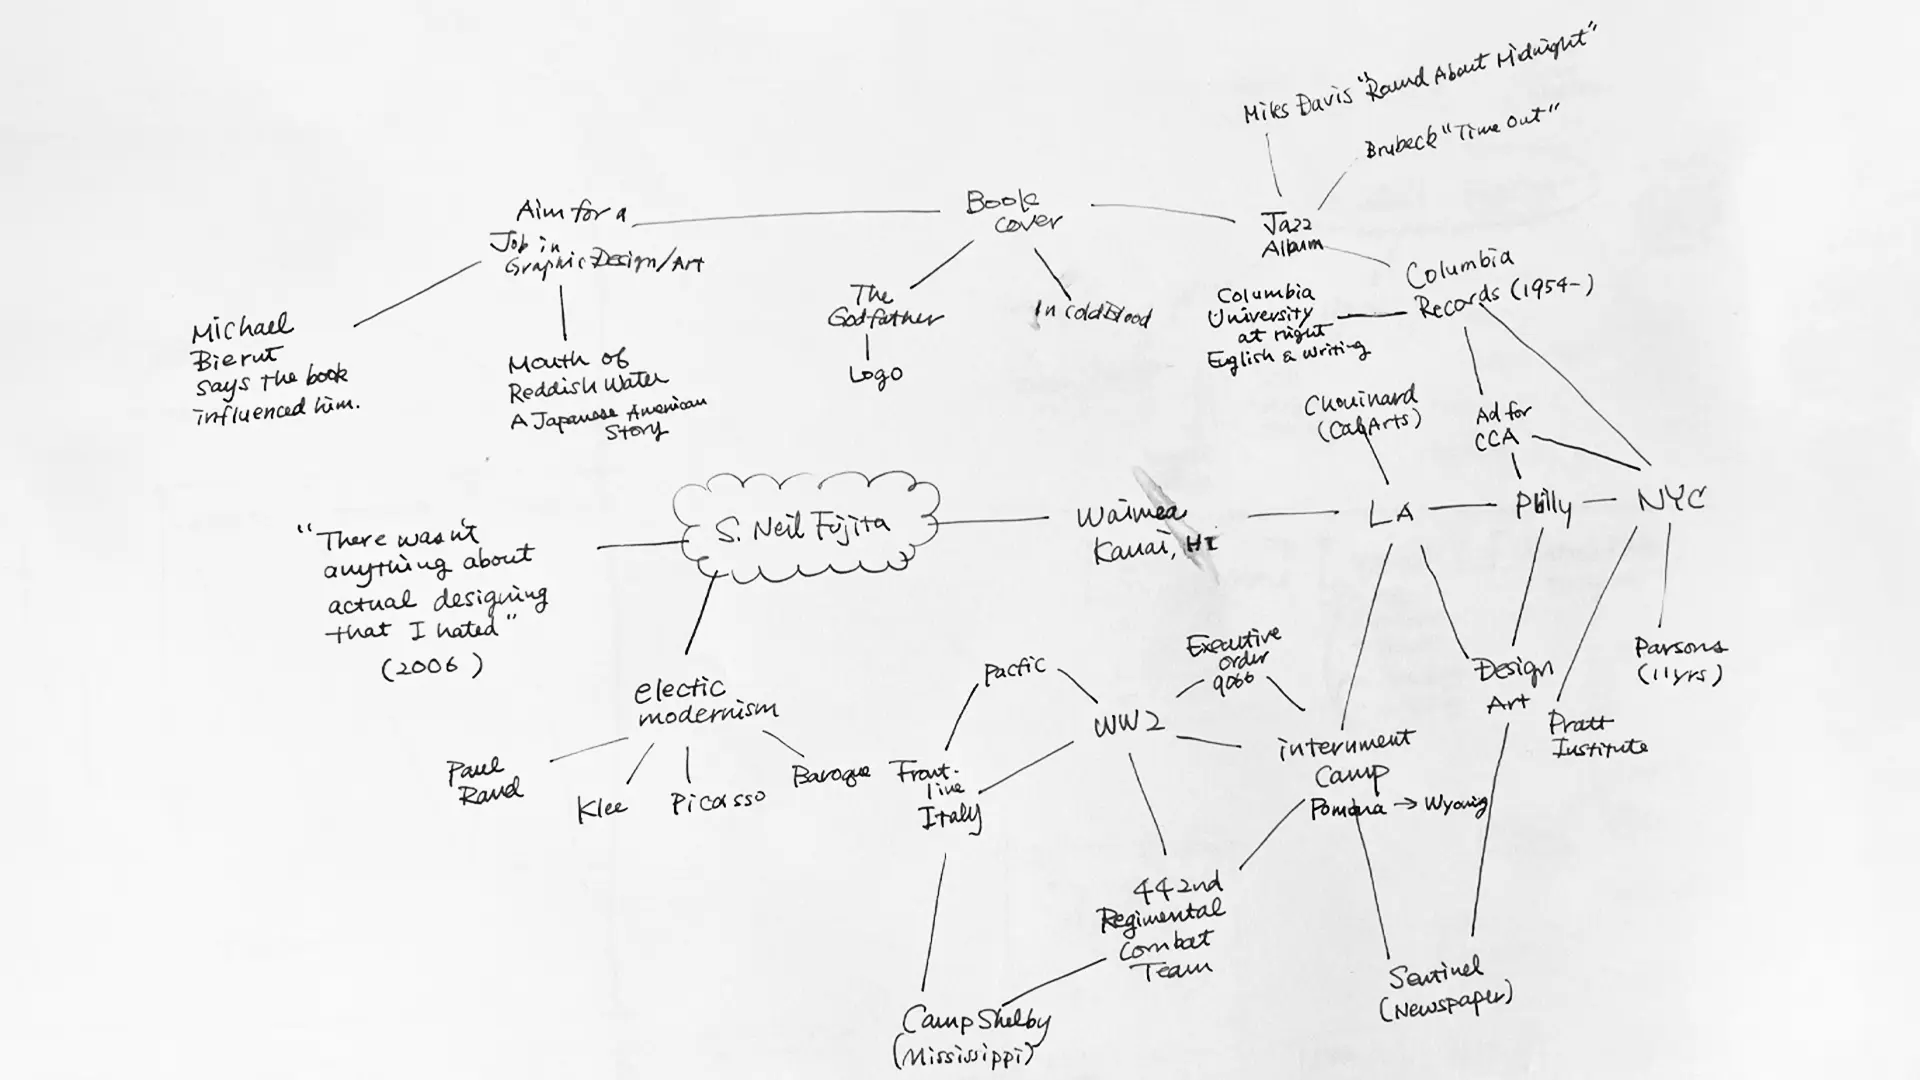 Miles Davis "Round About Midnight"
Brubeck "Time Out"
Aim for a
Job in
Graphic Design/Art
Book
cover
Jazz
Album
Columbia
Records (1954-)
The
Godfather
Logo
In Cold Blood
Columbia
University
at night
English & writing
Michael
Bierut
says the book
influenced him.
Mouth of
Reddish Water
A Japanese American
Story
Chouinard
(CalArts)
Ad for
CCA
S. Neil Fujita
Waimea
Kauai, HI
LA
Philly
NYC
"There wasn't
anything about
actual designing
that I hated"
(2006)
electic
modernism
Paul
Rand
Klee
Picasso
Baroque
Pacfic
WW2
Executive
order
9066
Front-
line
Italy
internment
Camp
Pomona → Wyoming
Design
Art
Pratt
Institute
Parsons
(11yrs)
442nd
Regimental
Combat
Team
Camp Shelby
(Mississippi)
Sentinel
(Newspaper)